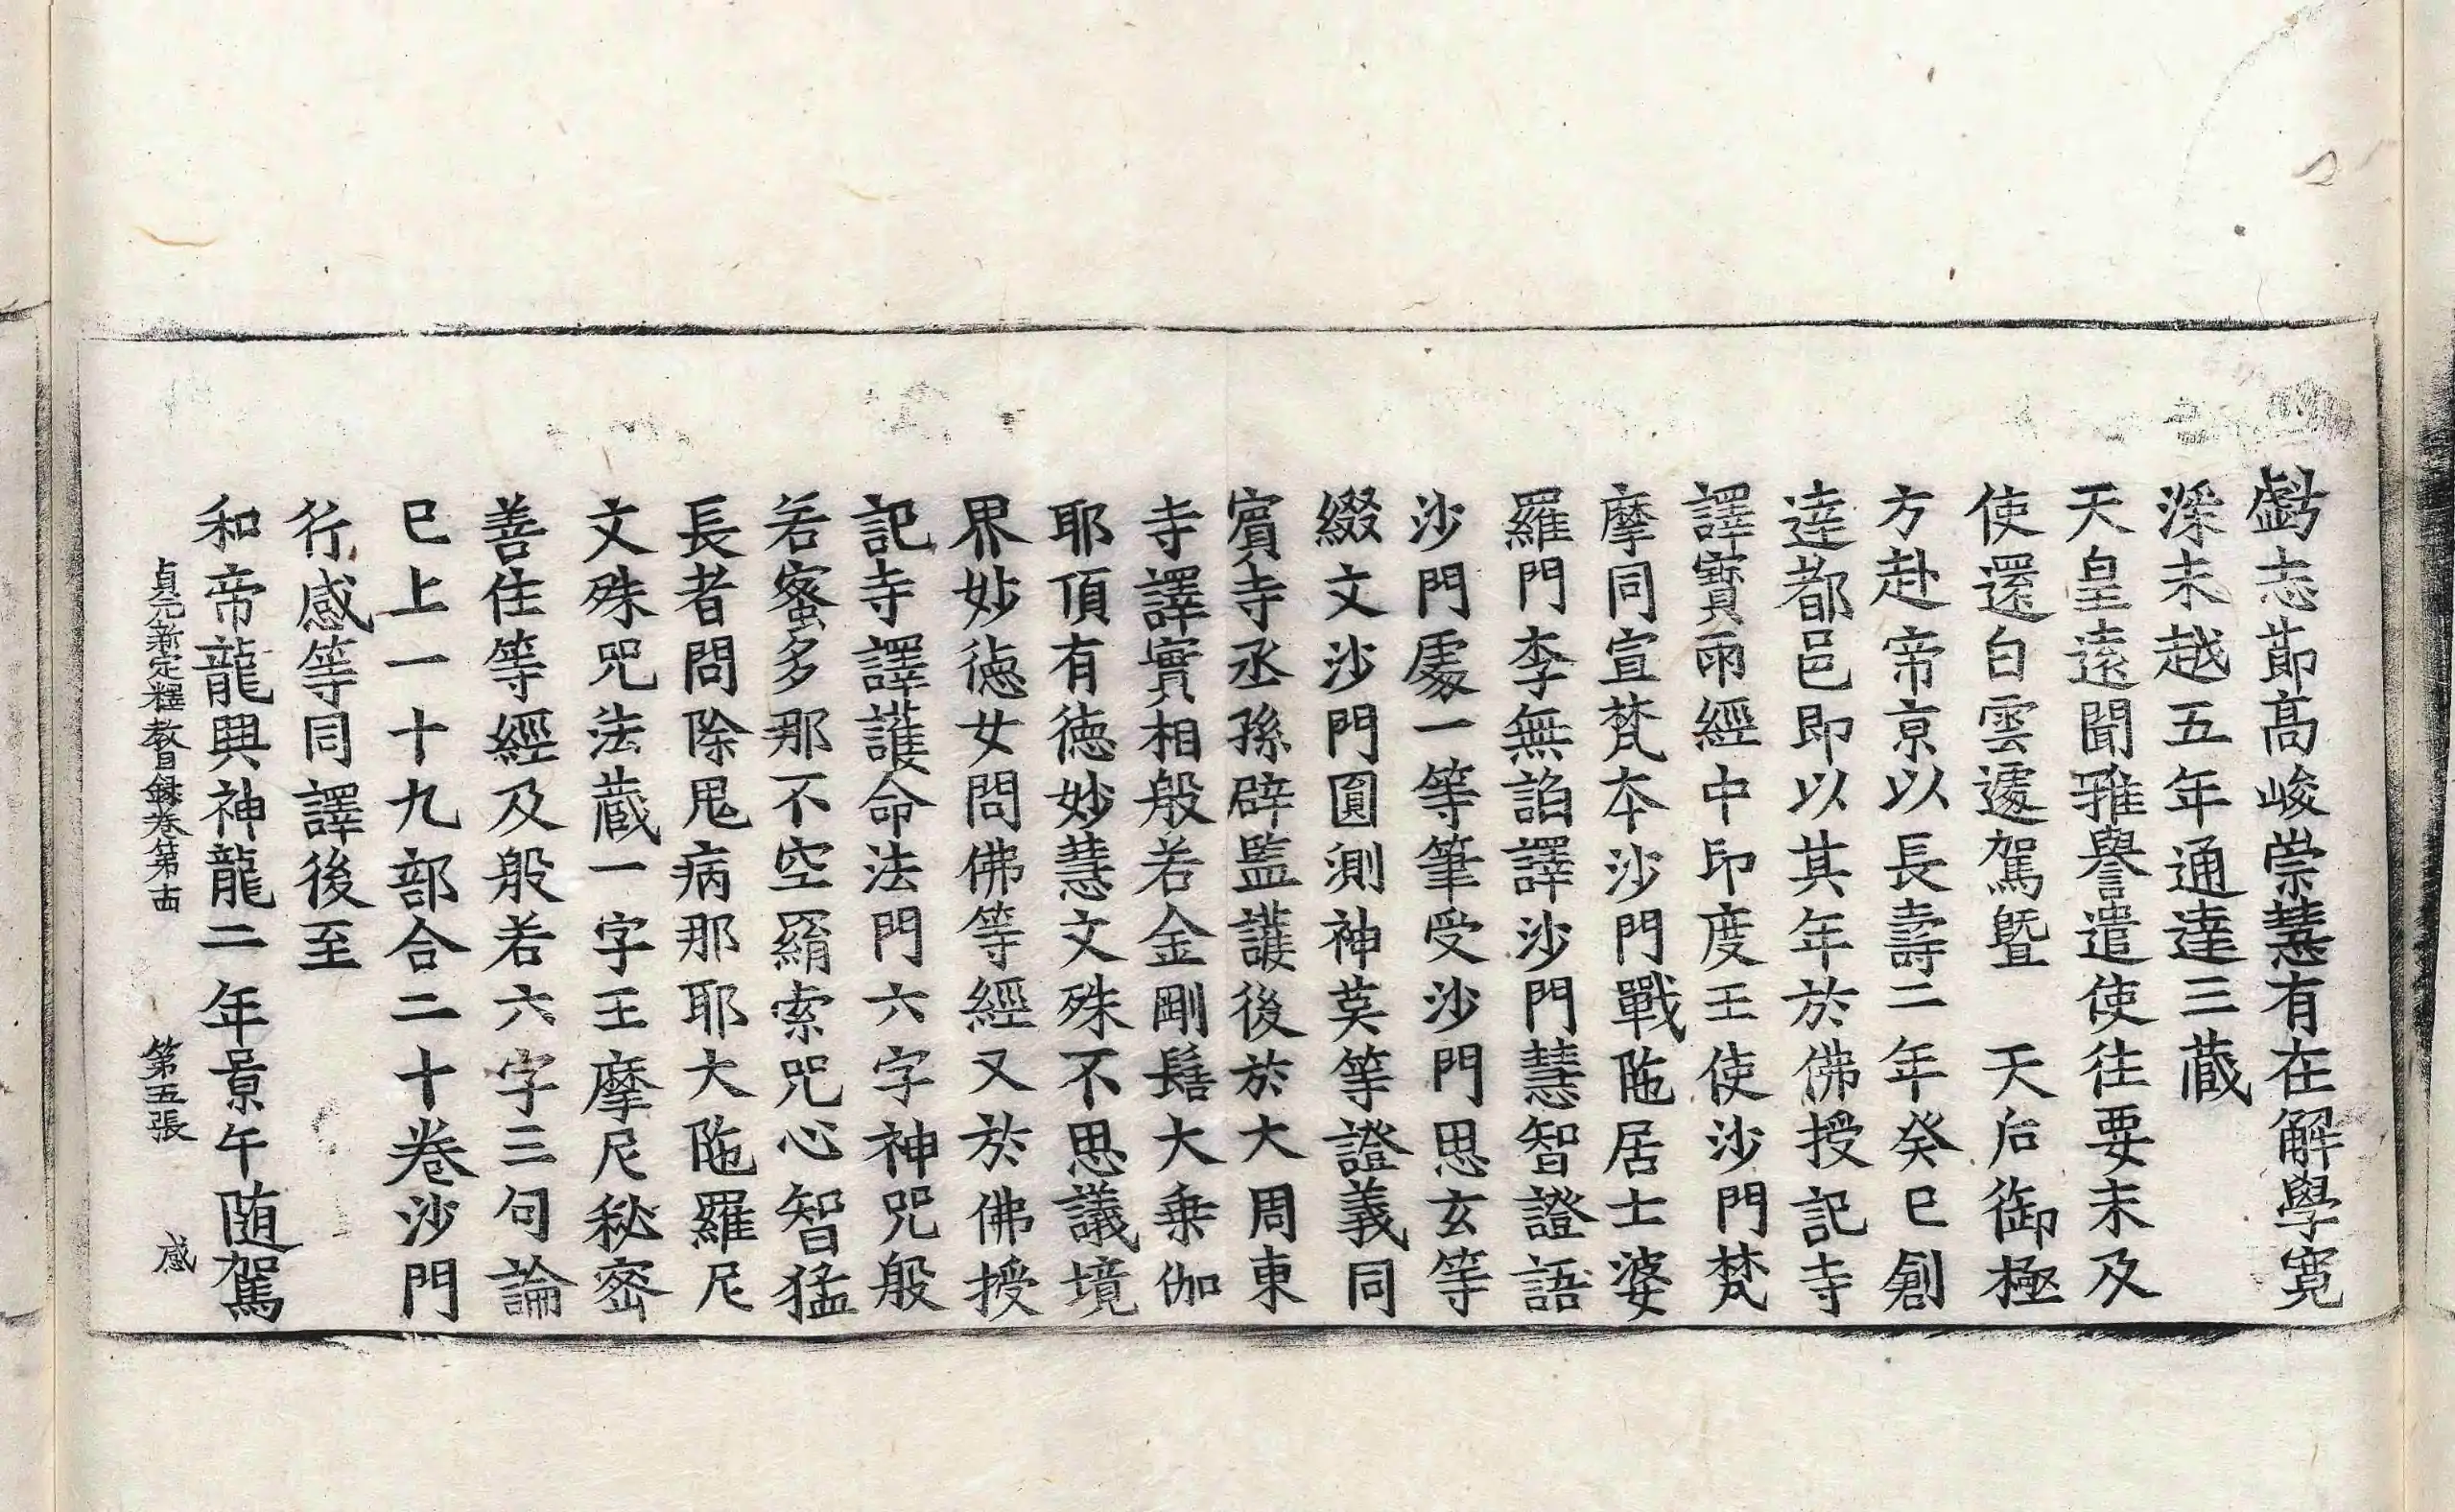 虧志節高峻崇慧有在解學寛
深未越五年通達三藏
天皇遠聞雅譽遣使往要未及
使還白雲遽駕曁　天后御極
方赴帝京以長壽二年癸巳創
達都邑即以其年於佛授記寺
譯寶雨經中印度王使沙門梵
摩同宣梵本沙門戰陁居士婆
羅門李無諂譯沙門慧智證語
沙門處一等筆受沙門思玄等
綴文沙門圓測神英等證義同
賔寺丞孫辟監護後於大周東
寺譯實相般若金剛髻大乗伽
耶頂有徳妙慧文殊不思議境
界妙徳女問佛等經又於佛授
記寺譯護命法門六字神咒般
若蜜多那不空羂索咒心智猛
長者問除鬼病那耶大陁羅尼
文殊咒法藏一字王摩尼秘密
善住等經及般若六字三句論
巳上一十九部合二十卷沙門
行感等同譯後至
和帝龍興神龍二年景午随駕
貞元新定釋教目録卷第十四　第五張　感